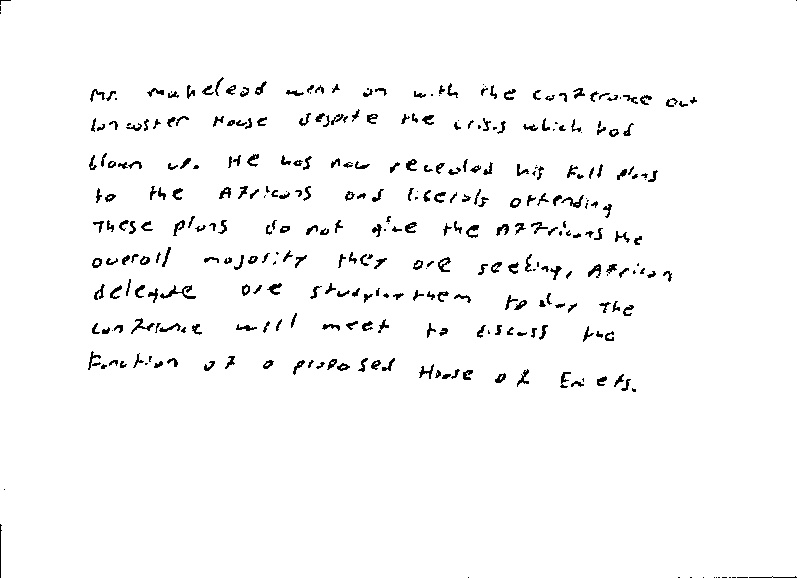 Mr. Macleod went on with the conference out
Lancaster House despite the crisis which had
blown up. He has now revealed his full plans
to the Africans and liberals attending
These plans do not give the Africans the
overall majority they are seeking, African
delegate are studying them today The
conference will meet to discuss the
function of a proposed House of